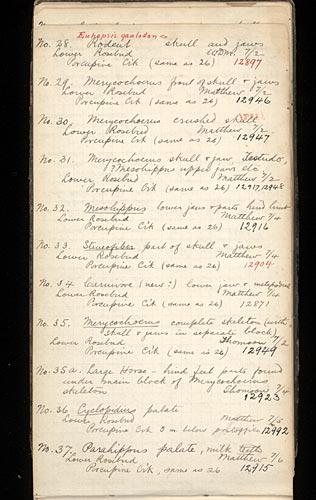 Euhapsis gaulodon
No. 28. Rodent skull and jaws
Lower Rosebud W.D.M. 7/2
Porcupine Crk (same as 26) 12897
No. 29. Merycochoerus front of skull & jaws
Lower Rosebud Matthew 7/2
Porcupine Crk (same as 26) 12946
No. 30. Merycochoerus crushed skull
Lower Rosebud Matthew 7/2
Porcupine Crk (same as 26) 12947
No. 31. Merycochoerus skull & jaw, Testudo,
? Mesohippus upper jaw etc.
Lower Rosebud Matthew 7/2
Porcupine Crk (same as 26) 12917, 12948
No. 32. Mesohippus lower jaws & parts hind limb
Lower Rosebud Matthew 7/4
Porcupine Crk (same as 26) 12916
No. 33. Steneofiber part of skull & jaws
Lower Rosebud Matthew 7/4
Porcupine Crk (same as 26) 12904
No. 34. Carnivore (new?) lower jaw & metapodial
Lower Rosebud Matthew 7/4
Porcupine Crk (same as 26) 12871
No. 35. Merycochoerus complete skeleton (with
skull & jaws in separate block)
Lower Rosebud Thomson 7/2
Porcupine Crk (same as 26) 12949
No. 35a. Large Horse - hind feet parts found
under main block of Merycochoerus
skeleton Thomson 7/4
12923
No. 36 Cyclopidius palate
Lower Rosebud Matthew 7/6
Porcupine Crk 3 m below 12992
No. 37. Parahippus palate, milk teeth
Lower Rosebud Matthew 7/6
Porcupine Crk, same as 26 12915